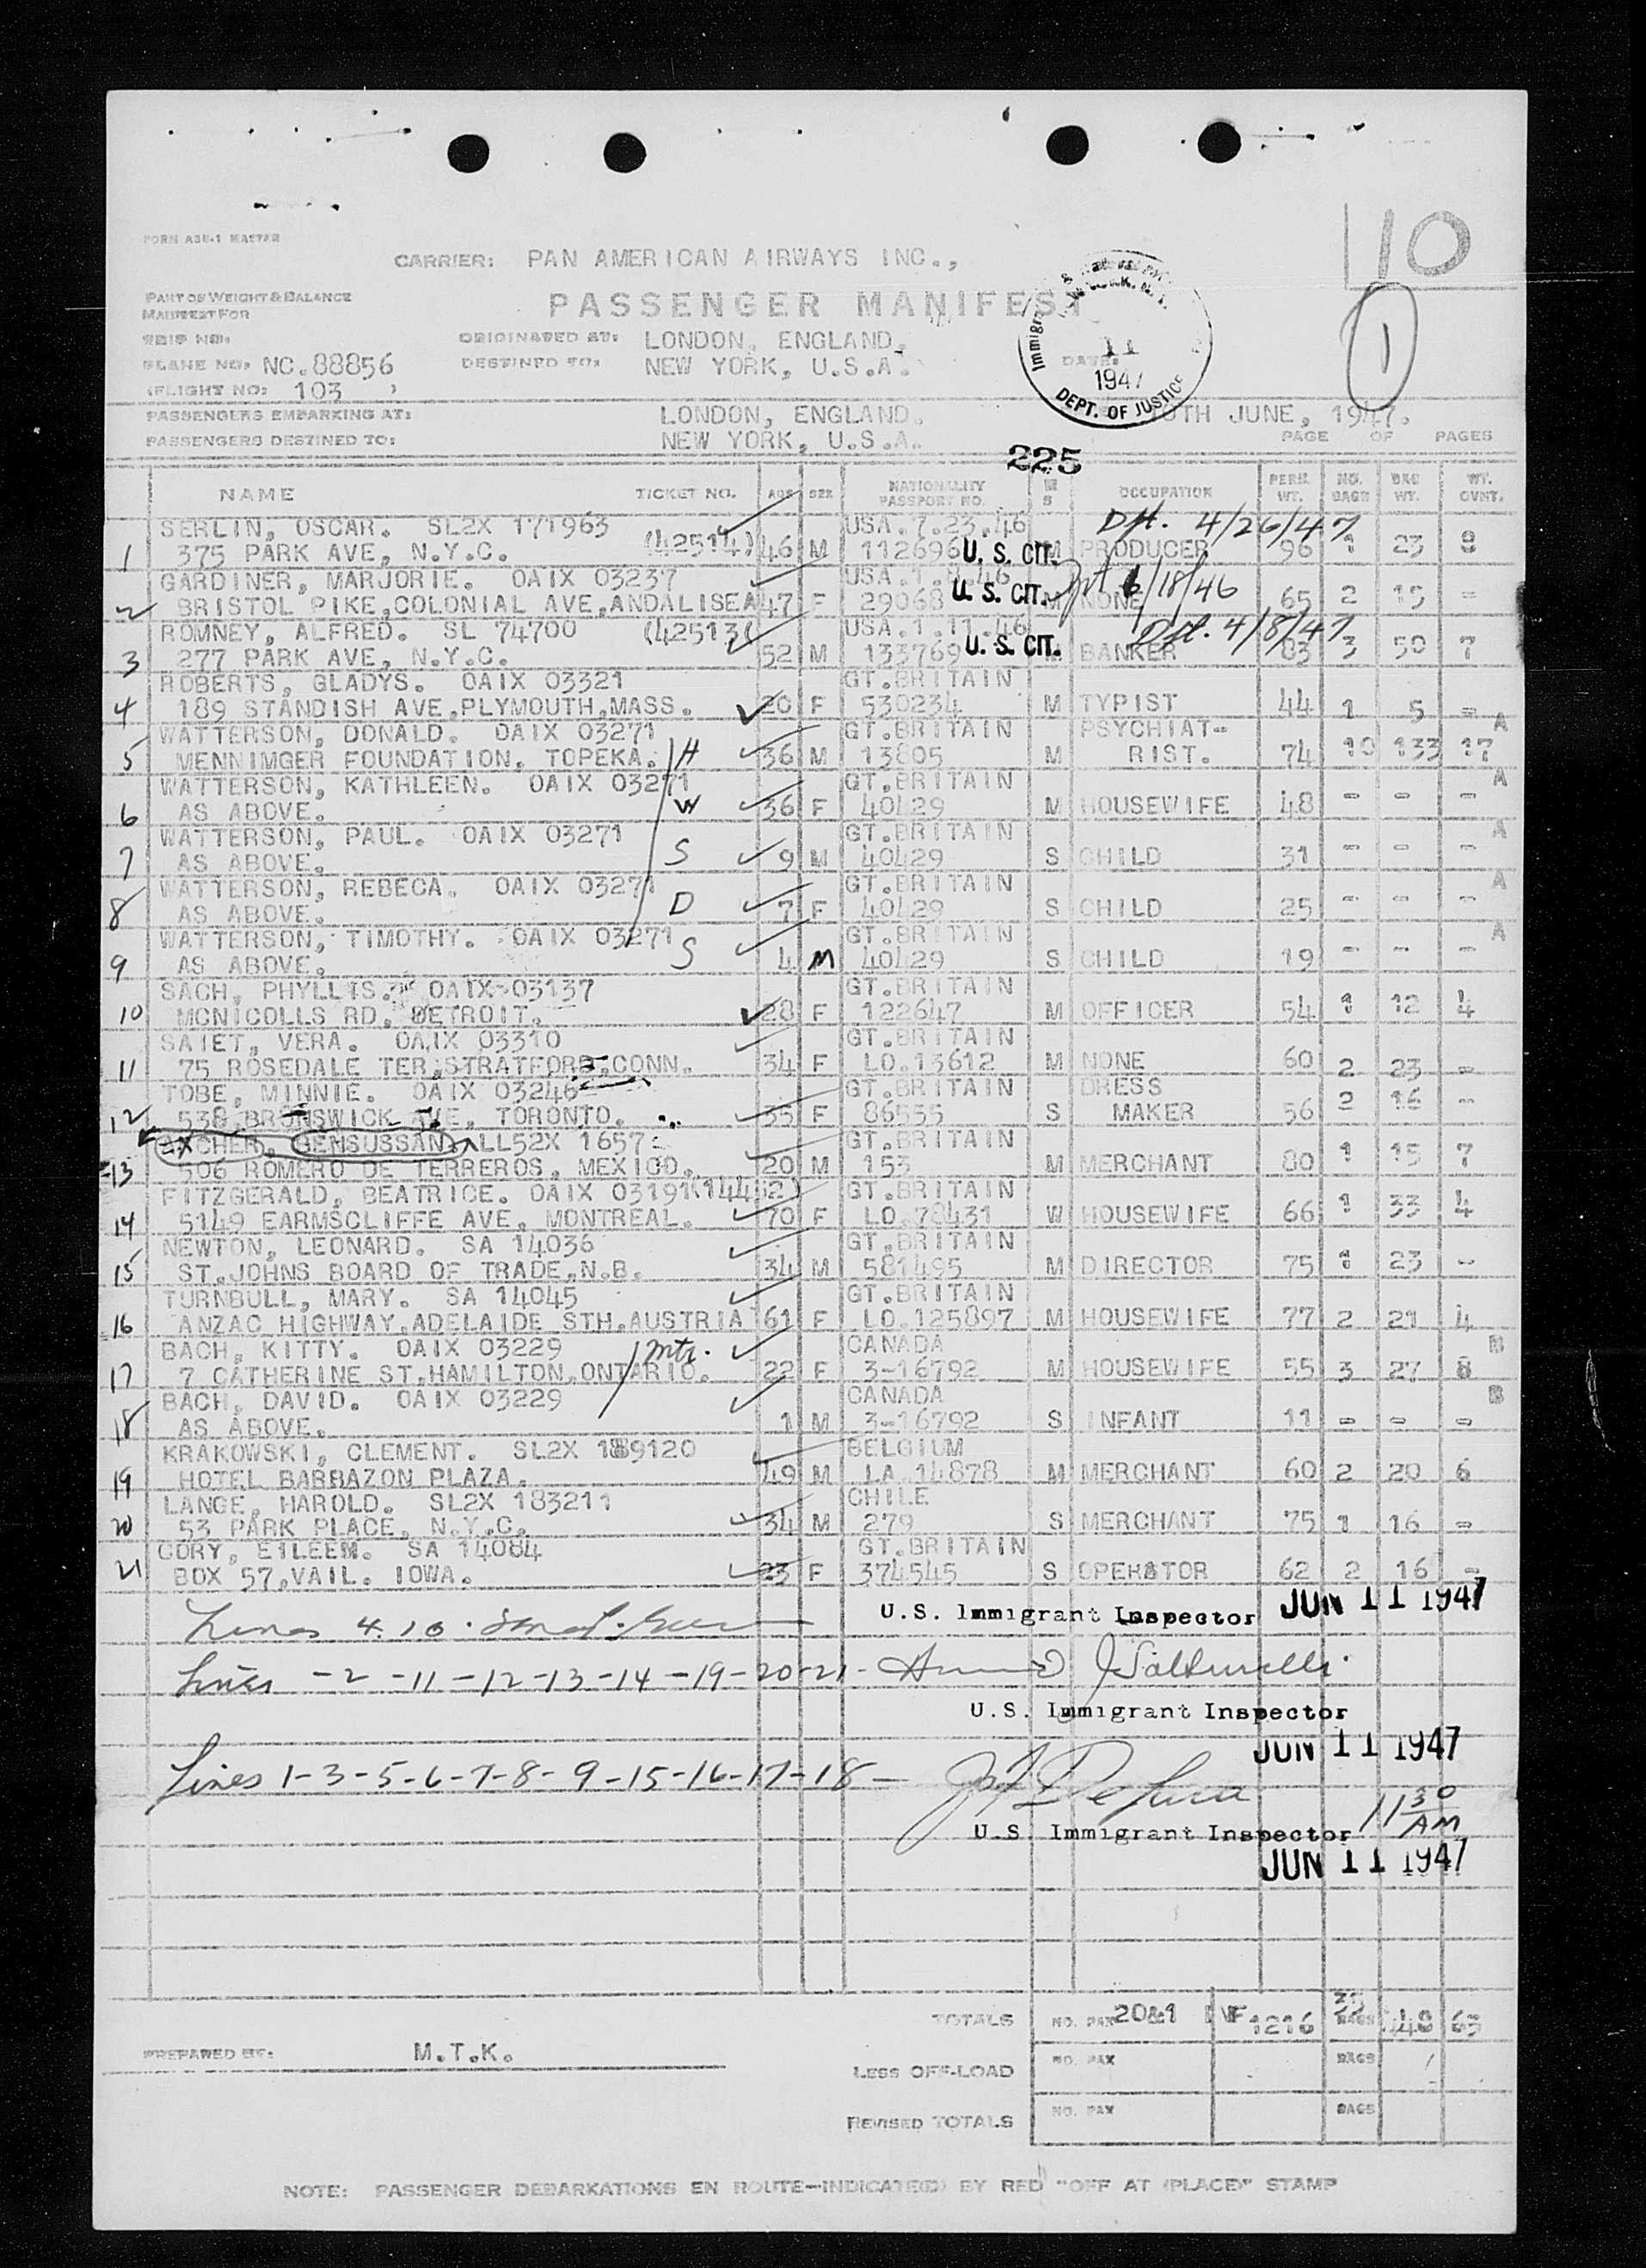 10
FORM A3U-1 MASTER
CARRIER: PAN AMERICAN AIRWAYS INC.,
PART OF WEIGHT & BALANCE
MANIFEST FOR
PASSENGER MANIFEST
1
TRIP NO:
ORIGINATED AT: LONDON, ENGLAND.
PLANE NO: NC.88856
DESTINED TO: NEW YORK, U.S.A.
DATE:
11
1947
DEPT. OF JUSTICE
(FLIGHT NO: 103 )
PASSENGERS EMBARKING AT: LONDON, ENGLAND. 10TH JUNE, 1947.
PASSENGERS DESTINED TO: NEW YORK, U.S.A. PAGE OF PAGES
225
NAME TICKET NO. AGE SEX NATIONALITY PASSPORT NO. M S OCCUPATION PERS. WT. NO. BAGS BAG WT. WT. OVNT.
SERLIN, OSCAR. SL2X 171963 USA.7.23.46 4/26/47
1 375 PARK AVE, N.Y.C. (42514) 46 M 112696 U. S. CIT. M PRODUCER 96 1 23 9
GARDINER, MARJORIE. OAIX 03237 USA.1.
2 BRISTOL PIKE,COLONIAL AVE,ANDALISEA 47 F 29068 U. S. CIT. M NONE 6/18/46 65 2 15 -
ROMNEY, ALFRED. SL 74700 (42513( USA.1.11.46 4/8/47
3 277 PARK AVE, N.Y.C. 52 M 133769 U. S. CIT. BANKER 83 3 50 7
ROBERTS, GLADYS. OAIX 03321 GT.BRITAIN
4 189 STANDISH AVE,PLYMOUTH,MASS. 20 F 530234 M TYPIST 44 1 5 -
WATTERSON, DONALD. OAIX 03271 GT.BRITAIN PSYCHIAT- A
5 MENNIMGER FOUNDATION, TOPEKA. H 36 M 13805 M RIST. 74 10 133 17
WATTERSON, KATHLEEN. OAIX 03271 GT.BRITAIN A
6 AS ABOVE. W 36 F 40429 M HOUSEWIFE 48 - - -
WATTERSON, PAUL. OAIX 03271 GT.BRITAIN A
7 AS ABOVE. S 9 M 40429 S CHILD 31 - - -
WATTERSON, REBECA. OAIX 03271 GT.BRITAIN A
8 AS ABOVE. D 7 F 40429 S CHILD 25 - - -
WATTERSON, TIMOTHY. OAIX 03271 GT.BRITAIN A
9 AS ABOVE. S 4 M 40429 S CHILD 19 - - -
SACH, PHYLLIS. OAIX 03137 GT.BRITAIN
10 MCNICOLLS RD, DETROIT. 28 F 122647 M OFFICER 54 1 12 4
SAIET, VERA. OAIX 03310 GT.BRITAIN
11 75 ROSEDALE TER,STRATFORD,CONN. 34 F LO.13612 M NONE 60 2 23 -
TOBE, MINNIE. OAIX 03246 GT.BRITAIN DRESS
12 538,BRUNSWICK AVE, TORONTO. 35 F 86555 S MAKER 56 2 16 -
GENSUSSAN. LL52X 1657 GT.BRITAIN
13 506 ROMERO DE TERREROS, MEXICO. 20 M 153 M MERCHANT 80 1 15 7
FITZGERALD, BEATRICE. OAIX 03191(14462) GT.BRITAIN
14 5149 EARMSCLIFFE AVE, MONTREAL. 70 F LO.78431 W HOUSEWIFE 66 1 33 4
NEWTON, LEONARD. SA 14036 GT.BRITAIN
15 ST.JOHNS BOARD OF TRADE,N.B. 34 M 581495 M DIRECTOR 75 1 23 -
TURNBULL, MARY. SA 14045 GT.BRITAIN
16 ANZAC HIGHWAY,ADELAIDE STH.AUSTRIA 61 F LO.125897 M HOUSEWIFE 77 2 21 4
BACH, KITTY. OAIX 03229 mtr. CANADA B
17 7 CATHERINE ST.HAMILTON,ONTARIO. 22 F 3-16792 M HOUSEWIFE 55 3 27 8
BACH, DAVID. OAIX 03229 CANADA B
18 AS ABOVE. 1 M 3-16792 S INFANT 11 - - -
KRAKOWSKI, CLEMENT. SL2X 189120 BELGIUM
19 HOTEL BARBAZON PLAZA. 49 M LA.14878 M MERCHANT 60 2 20 6
LANGE, HAROLD. SL2X 183211 CHILE
20 53 PARK PLACE, N.Y.C. 34 M 279 S MERCHANT 75 1 16 -
CORY, EILEEM. SA 14084 GT.BRITAIN
21 BOX 57,VAIL. IOWA. 23 F 374545 S OPERATOR 62 2 16 -
Lines 4. 10.
U.S. Immigrant Inspector JUN 11 1947
Lines -2-11-12-13-14-19-20-21-
U.S. Immigrant Inspector
JUN 11 1947
Lines 1-3-5-6-7-8-9-15-16-17-18-
U.S. Immigrant Inspector 11 30 AM
JUN 11 1947
TOTALS NO. PAX 20&1 INF 1216 BAGS 63
PREPARED BY: M.T.K.
LESS OFF-LOAD NO. PAX BAGS
REVISED TOTALS NO. PAX BAGS
NOTE: PASSENGER DEBARKATIONS EN ROUTE-INDICATE(D) BY RED "OFF AT (PLACE)" STAMP